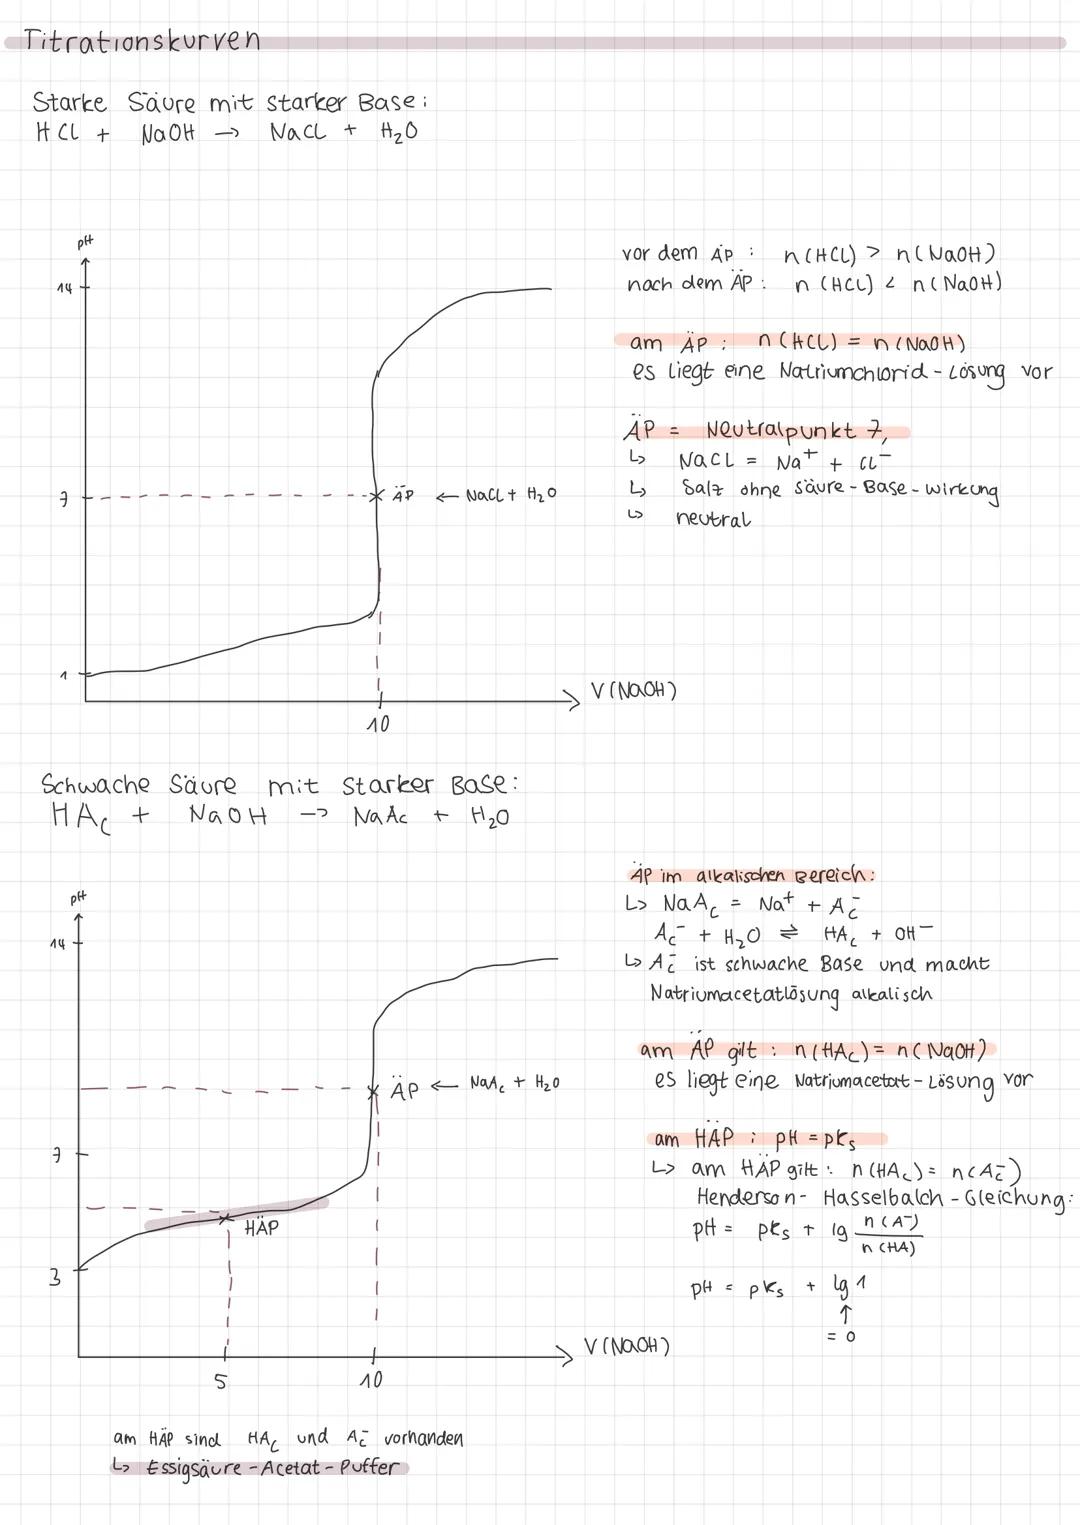 Titrationskurven
Starke Säure mit starker Base:
HCl + NaOH → NaCl + H₂O
pH
14
7
1
ÄP ← NaCl + H₂O
10
V(NaOH)
vor dem ÄP : n(HCl) > n(NaOH)
nach dem ÄP : n(HCl) < n(NaOH)
am ÄP : n(HCl) = n(NaOH)
es liegt eine Natriumchlorid-Lösung vor
ÄP = Neutralpunkt 7,
↳ NaCl = Na⁺ + Cl⁻
↳ Salz ohne Säure-Base-Wirkung
↳ neutral
Schwache Säure mit starker Base:
HAc + NaOH → NaAc + H₂O
pH
14
7
3
ÄP ← NaAc + H₂O
HÄP
5
10
V(NaOH)
ÄP im alkalischen Bereich:
↳ NaAc = Na⁺ + Ac⁻
Ac⁻ + H₂O ⇌ HAc + OH⁻
↳ Ac⁻ ist schwache Base und macht
Natriumacetatlösung alkalisch
am ÄP gilt : n(HAc) = n(NaOH)
es liegt eine Natriumacetat-Lösung vor
am HÄP : pH = pKs
↳ am HÄP gilt : n(HAc) = n(Ac⁻)
Henderson-Hasselbalch-Gleichung:
pH = pKs + lg n(A⁻)
n(HA)
pH = pKs + lg 1
↑
= 0
am HÄP sind HAc und Ac⁻ vorhanden
↳ Essigsäure-Acetat-Puffer